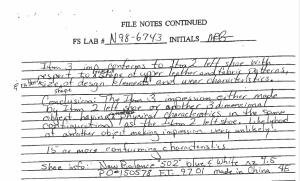 FILE NOTES CONTINUED
FS LAB # N98-6743 INITIALS
Item 3 imp. conforms to Item 2 left shoe with
respect to shape of upper leather and fabric patterns,
size of design elements and wear characteristics.
Conclusion: The Item 3 impression either made
by Item 2 left shoe or another 3 dimensional
object having physical characteristics in the same
configuration as the Item 2 left shoe. Likelyhood
of another object making impression very unlikely.
15 or more conforming characteristics.
Shoe info: New Balance 502 blue & white sz 9.5
PO-150578 FT. 9701 made in China 95